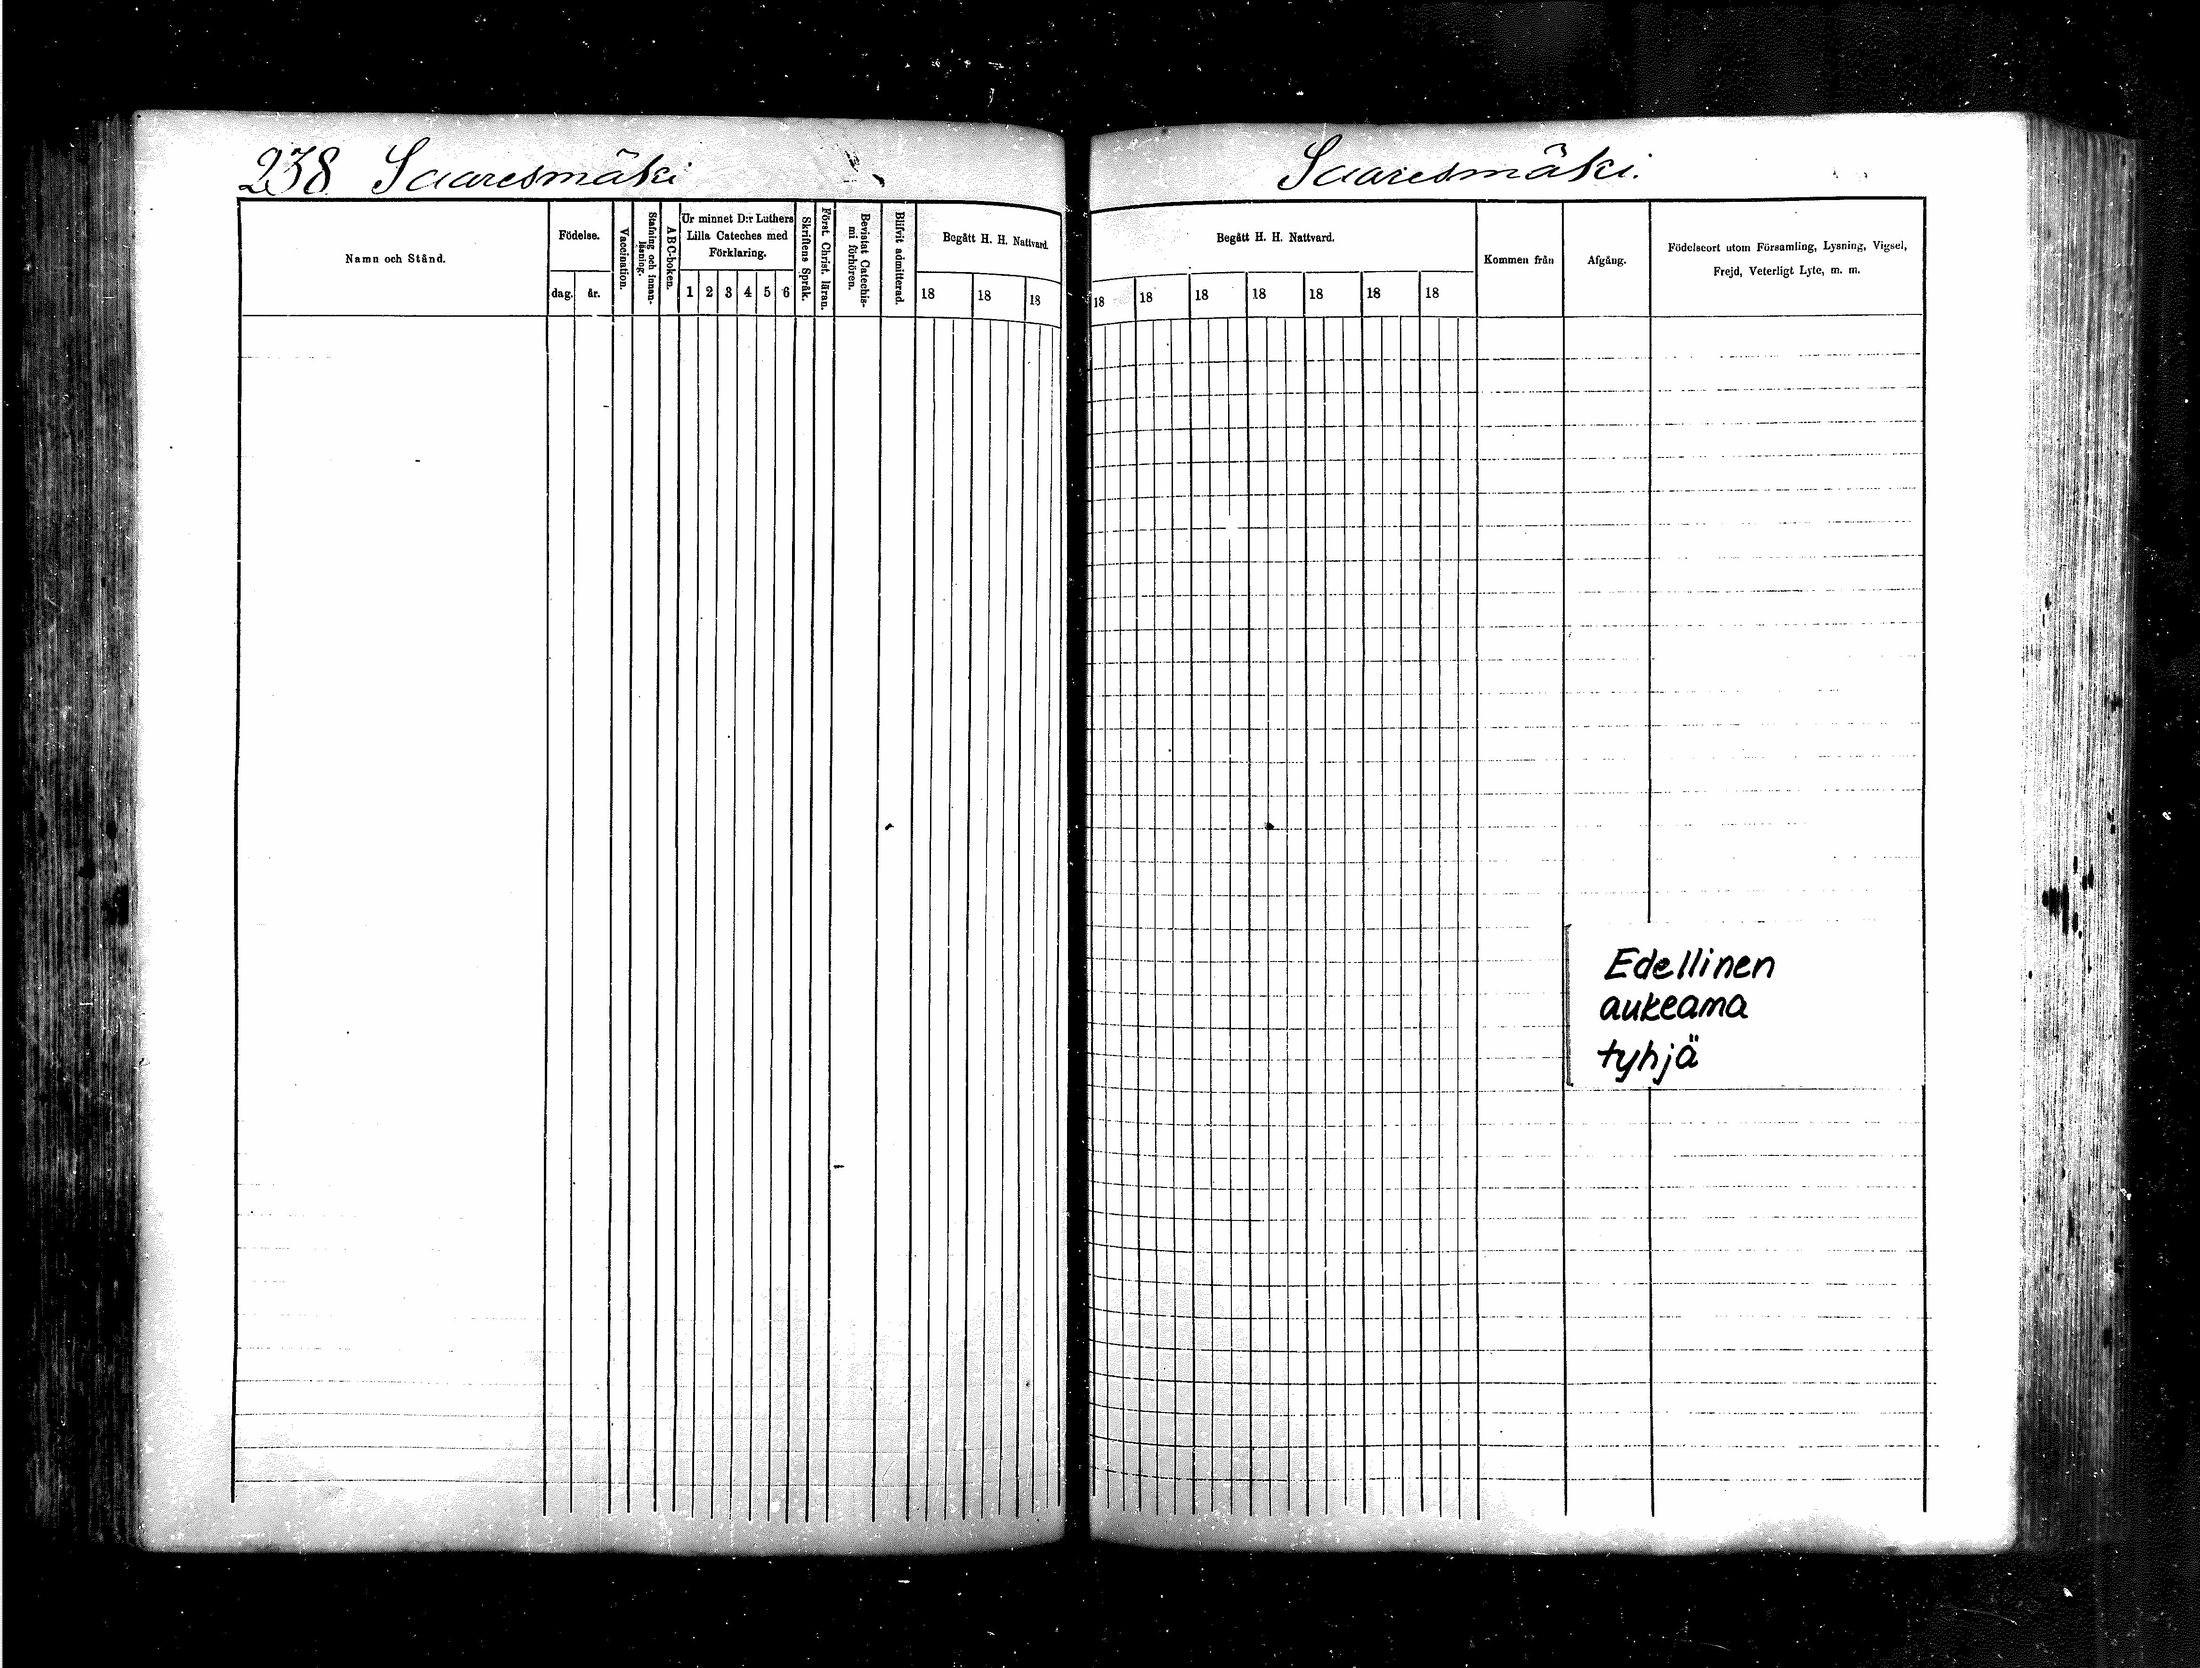 238 Saaresmäki
Namn och Stånd.
Födelse.
dag.
år.
Vaccination.
Stafning och innan-
läsning.
ABC-boken.
Ur minnet D:r Luthers
Lilla Cateches med
Förklaring.
1 2 3 4 5 6
Skriftens Språk.
Först. Christ. läran.
Bevistat Catechis-
mi förhören.
Blifvit admitterad.
Begått H. H. Nattvard
18 18 18
Saaresmäki.
Begått H. H. Nattvard.
18 18 18 18 18 18 18
Kommen från
Afgång.
Födelseort utom Församling, Lysning, Vigsel,
Frejd, Veterligt Lyte, m. m.
Edellinen
aukeama
tyhjä